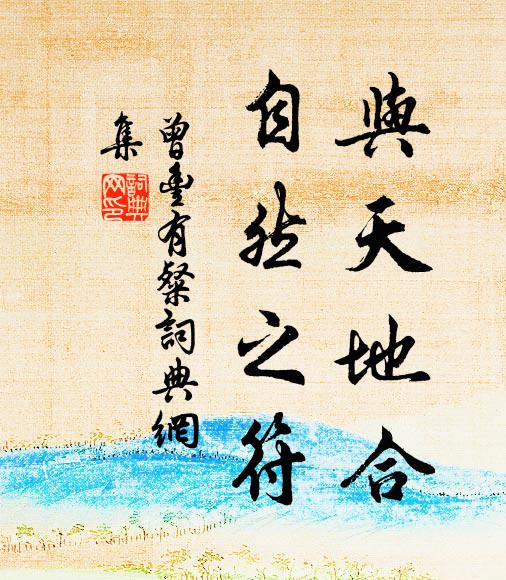 與天地合
自然之符
曾豊有粲詞典網
集
詞典
网印